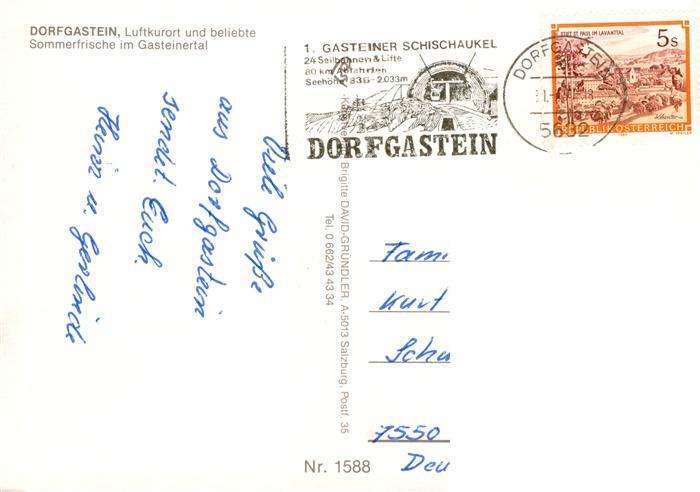 DORFGASTEIN, Luftkurort und beliebte
Sommerfrische im Gasteinertal
1. GASTEINER SCHISCHAUKEL
24 Seilbahnen & Lifte
80 km Abfahrten
Seehöhe 836-2.033m
DORFGASTEIN
DORFGASTEIN
5632
STIFT ST. PAUL IM LAVANTTAL
5s
REPUBLIK ÖSTERREICH
Viele Grüße
aus Dorfgastein
sendet Euch
u. Gerlinde
Brigitte DAVID-GRÜNDLER, A-5013 Salzburg, Postf. 35
Tel. 0 662/43 43 34
Fami
Kurt
Schu
7550
Deu
Nr. 1588